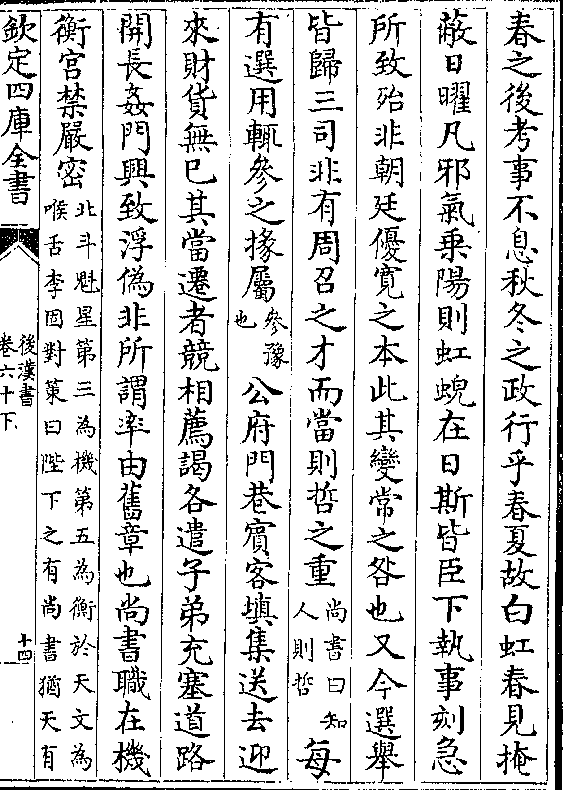 春之後考事不息秋冬之政行乎春夏故白虹春見掩
蔽日曜凡邪氣乗陽則虹蜺在日斯皆臣下執事刻急
所致殆非朝廷優寛之本此其變常之咎也又今選舉
皆歸三司非有周召之才而當則哲之重
尚書曰知
人則哲
每
有選用輒參之掾屬
參豫
也
公府門巷賓客填集送去迎
來財貨無已其當遷者競相薦謁各遣子弟充塞道路
開長姦門興致浮偽非所謂率由舊章也尚書職在機
衡宫禁嚴密
北斗魁星第三為機第五為衡於天文為
喉舌李固對策曰陛下之有尚書猶天有
欽定四庫全書
後漢書
卷六十下
十四